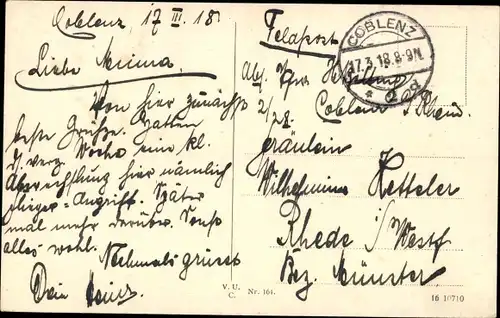 Coblenz, 17 III. 18.
Liebe Minna.
Von hier zunächst
beste Grüße. Hatten
d/ verg. Woche eine kl.
Abwechslung hier nämlich
Flieger-Angriff. Später
mal mehr darüber. Sonst
alles wohl.
Nochmals grüsst
Dein
V. U.
C.
Nr. 164.
Feldpost
COBLENZ
17.3.18.8-9N.
Abs.
2/28. Coblenz a/Rhein.
Fräulein
Wilhelmine Hetteler
Rhede i/Westf
Bez. Münster
16 10710